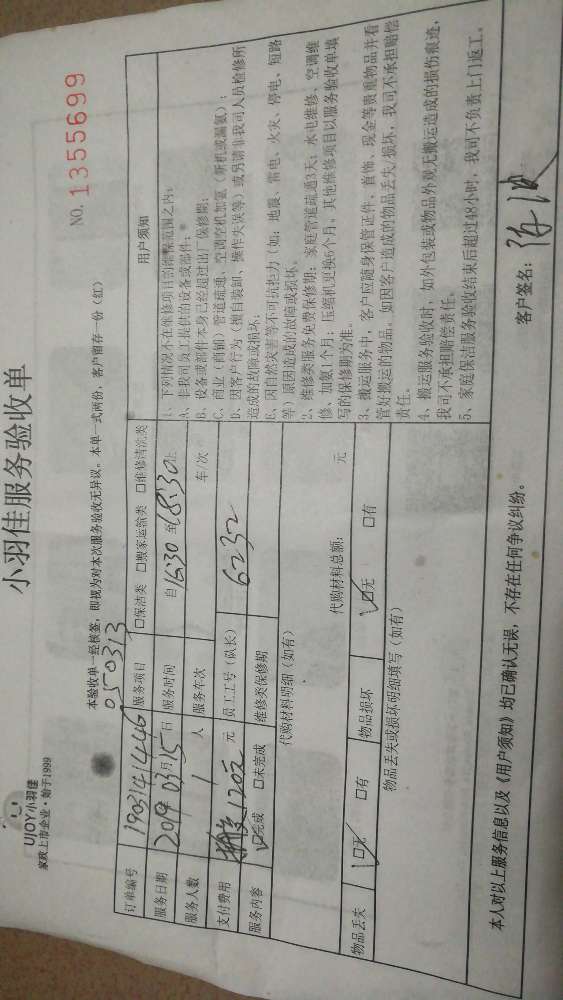 UJOY小羽佳
家政上市企业·始于1999
小羽佳服务验收单
NO. 1355699
本验收单一经核签，即视为对本次服务验收无异议。本单一式两份，客户留存一份（红）
0550313
订单编号
服务项目 □保洁类 □搬家运输类 □维修清洗类
服务日期 2019年03月15日
服务时间 自16:30至18:30止
服务人数 1 人
服务车次 车/次
支付费用 120元 元
员工工号（队长） 6232
服务内容 ☑完成 □未完成
维修类保修期
代购材料明细（如有）
代购材料总额： 元
物品丢失 ☑无 □有
物品损坏 ☑无 □有
物品丢失或损坏明细填写（如有）
用户须知
1、下列情况不在维修项目的维保范围之内：
A、非我司员工提供的设备或部件；
B、设备或部件本身已经超过出厂保修期；
C、商业（商铺）管道疏通、空调空机加氟（新机或漏氟）；
D、因客户行为（擅自装卸、操作失误等）或另请非我司人员检修所
造成的故障或损坏；
E、因自然灾害等不可抗拒力（如：地震、雷电、火灾、停电、短路
等）原因造成的故障或损坏。
2、维修类服务免费保修期：家庭管道疏通3天；水电维修、空调维
修、加氟1个月；压缩机更换6个月，其他维修项目以服务验收单填
写的保修期为准。
3、搬运服务中，客户应随身保管证件、首饰、现金等贵重物品并看
管好搬运的物品。如因客户造成的物品丢失/损坏，我司不承担赔偿
责任。
4、搬运服务验收时，如外包装或物品外观无搬运造成的损伤痕迹，
我司不承担赔偿责任。
5、家庭保洁服务验收结束后超过48小时，我司不负责上门返工。
本人对以上服务信息以及《用户须知》均已确认无误，不存在任何争议纠纷。
客户签名：